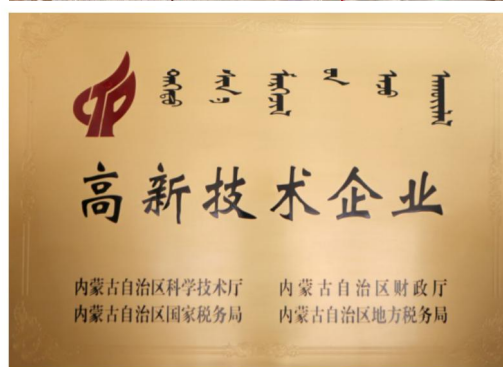 高新技术企业
内蒙古自治区科学技术厅 内蒙古自治区财政厅
内蒙古自治区国家税务局 内蒙古自治区地方税务局